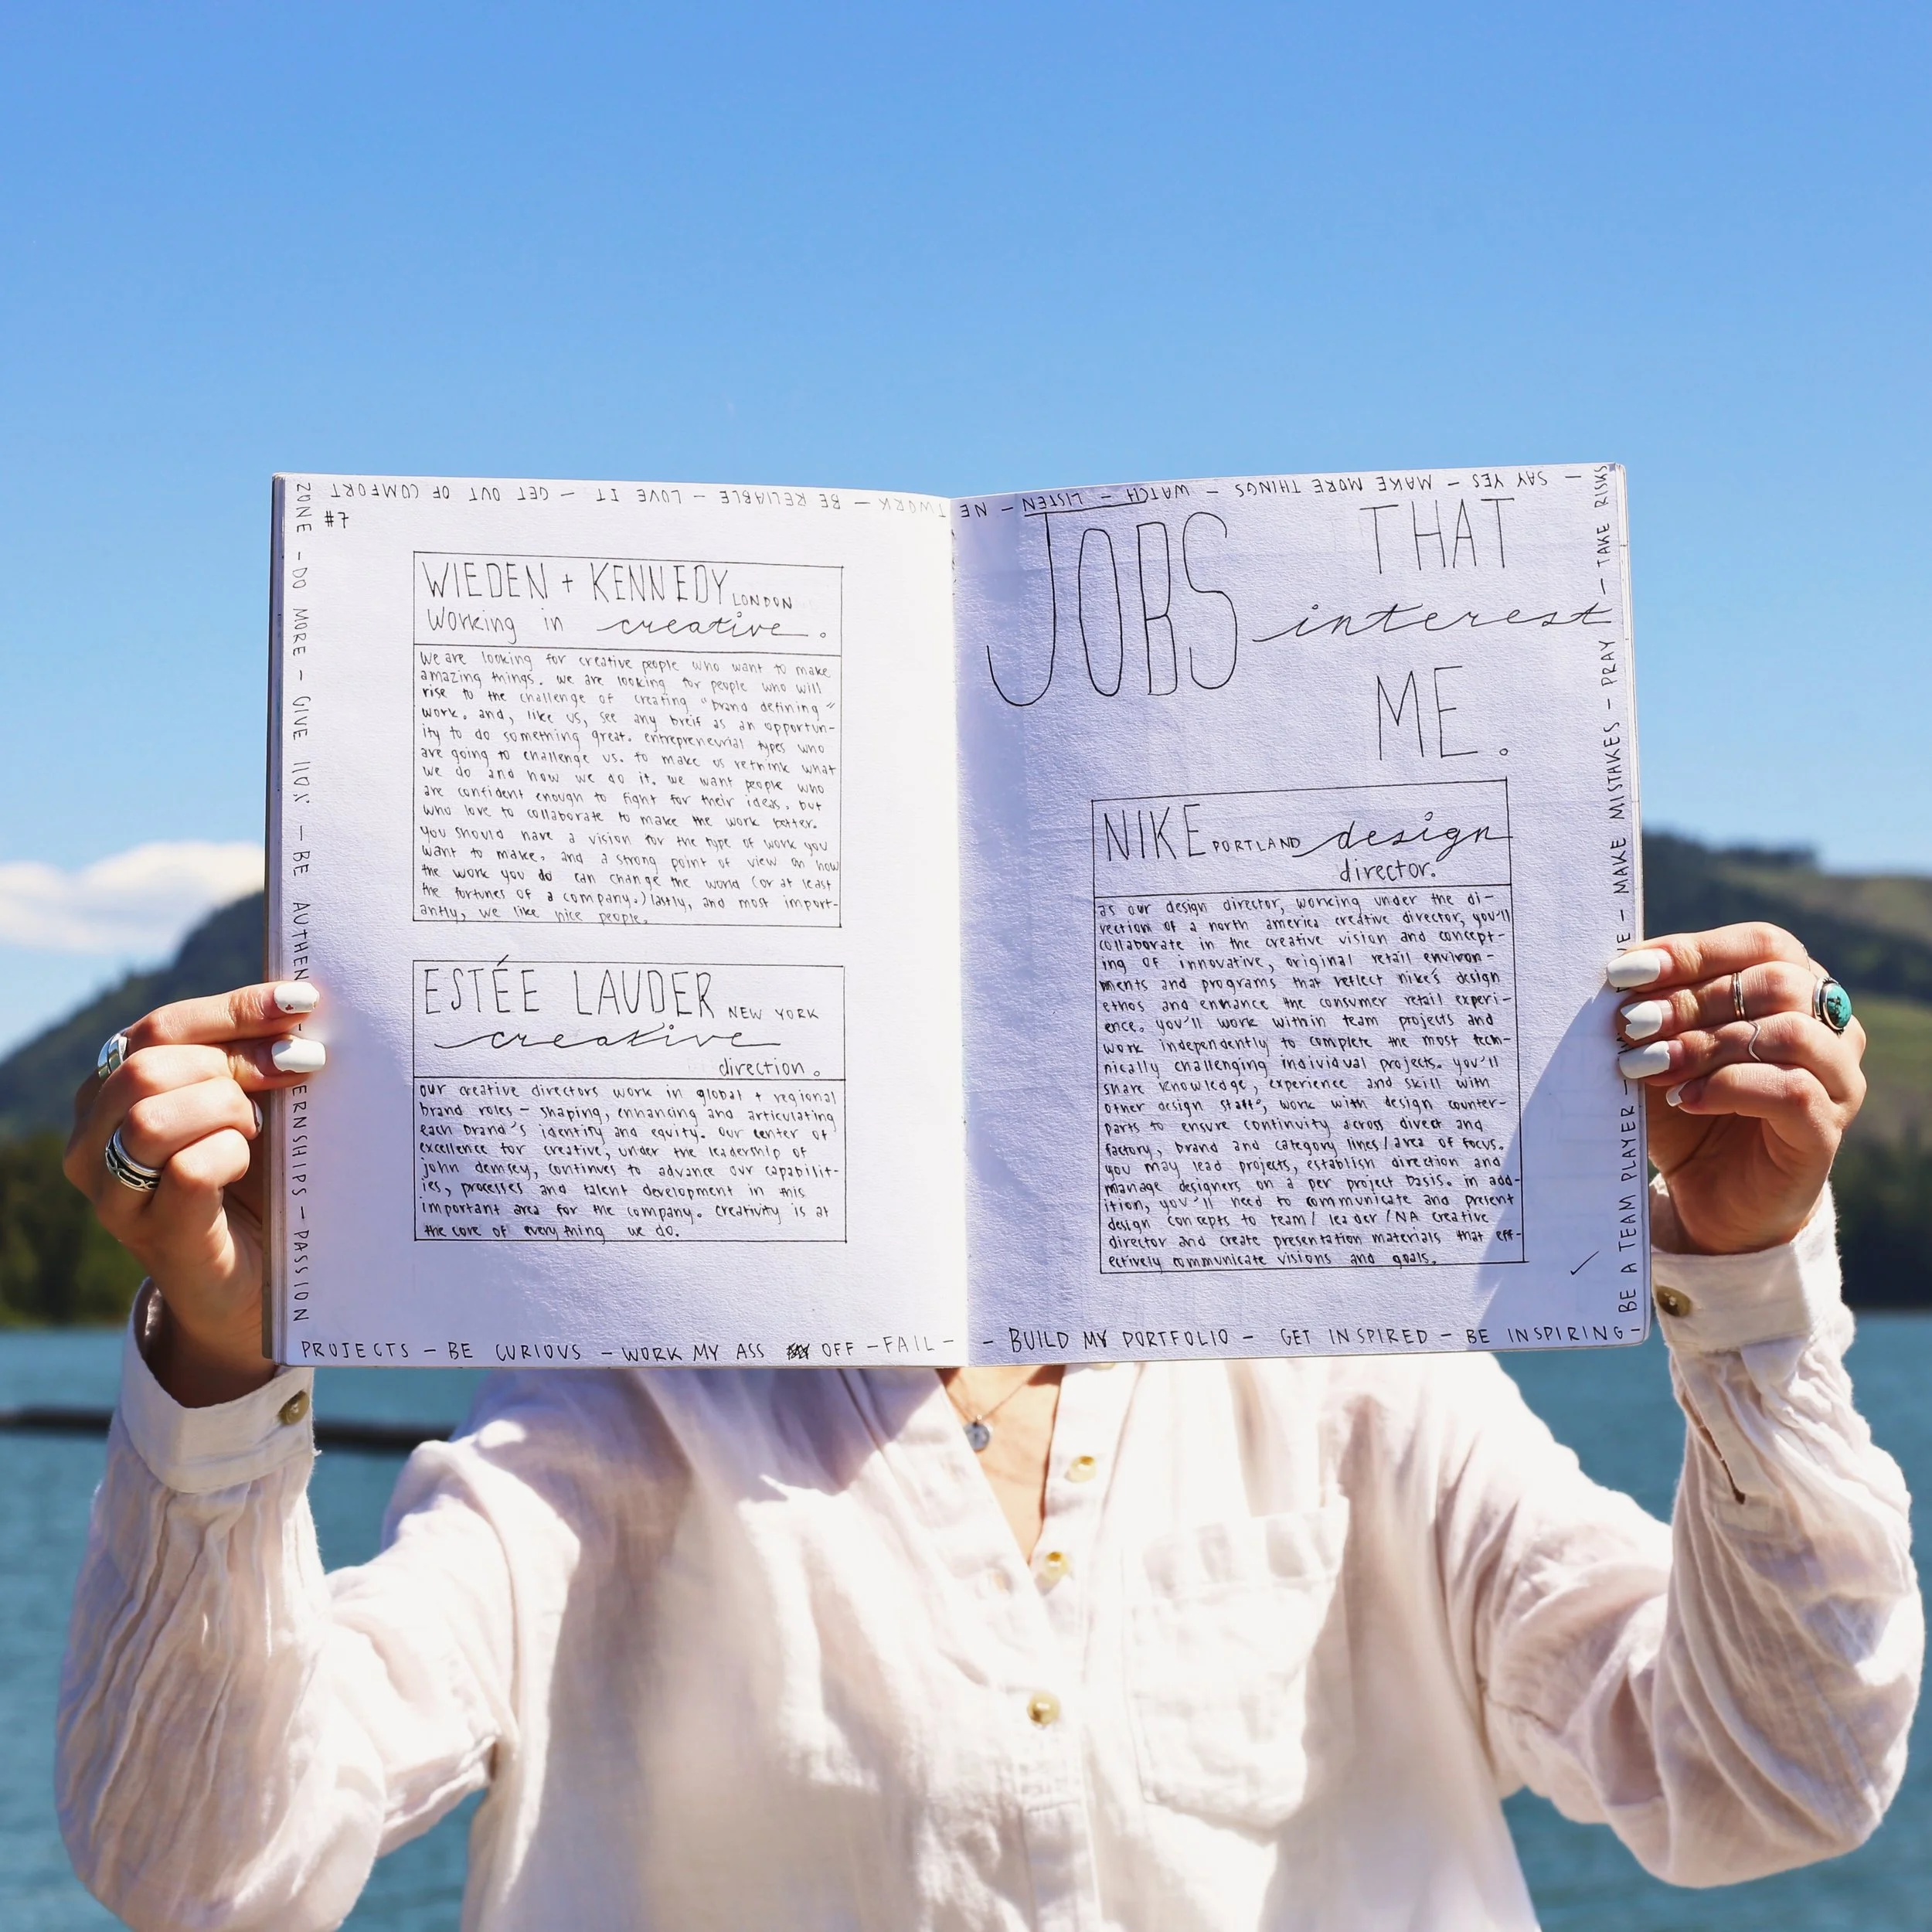 #7
WIEDEN + KENNEDY LONDON
Working in creative.
we are looking for creative people who want to make
amazing things. we are looking for people who will
rise to the challenge of creating "brand defining"
work. and, like us, see any breif as an opportun-
ity to do something great. entrepreneurial types who
are going to challenge us. to make us rethink what
we do and how we do it. we want people who
are confident enough to fight for their ideas. but
who love to collaborate to make the work better.
you should have a vision for the type of work you
want to make. and a strong point of view on how
the work you do can change the world (or at least
the fortunes of a company.) lastly, and most import-
antly, we like nice people.
ESTÉE LAUDER NEW YORK
creative
direction.
our creative directors work in global + regional
brand roles - shaping, enhancing and articulating
each brand's identity and equity. our center of
excellence for creative, under the leadership of
john demsey, continues to advance our capabilit-
ies, processes and talent development in this
important area for the company. creativity is at
the core of everything we do.
JOBS THAT
interest
ME.
NIKE PORTLAND design
director.
as our design director, working under the di-
rection of a north america creative director, you'll
collaborate in the creative vision and concept-
ing of innovative, original retail environ-
ments and programs that reflect nike's design
ethos and enhance the consumer retail experi-
ence. you'll work within team projects and
work independently to complete the most tech-
nically challenging individual projects. you'll
share knowledge, experience and skill with
other design staff, work with design counter-
parts to ensure continuity across direct and
factory, brand and category lines/area of focus.
you may lead projects, establish direction and
manage designers on a per project basis. in add-
ition, you'll need to communicate and present
design concepts to team/ leader/NA creative
director and create presentation materials that eff-
ectively communicate visions and goals.
PROJECTS - BE CURIOUS - WORK MY ASS OFF - FAIL -
- BUILD MY PORTFOLIO - GET INSPIRED - BE INSPIRING -
BE A TEAM PLAYER -
- MAKE MISTAKES - PRAY - TAKE RISKS
- SAY YES - MAKE MORE THINGS - WATCH - LISTEN - NE
TWORK - BE RELIABLE - LOVE IT - GET OUT OF COMFORT
ZONE - DO MORE - GIVE 110% - BE AUTHEN
ERNSHIPS - PASSION